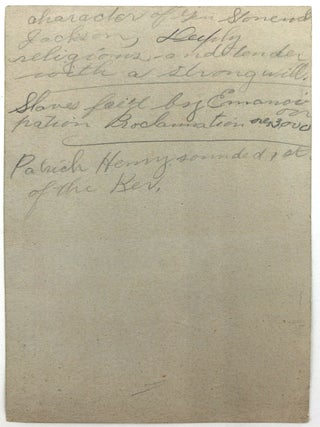 character of Gen Stonewal
Jackson, Deeply
religious and tender
with a strong will.
Slaves
by Emanci
pation Proclamation
Patrick Henry sounded, st
of the Rev.